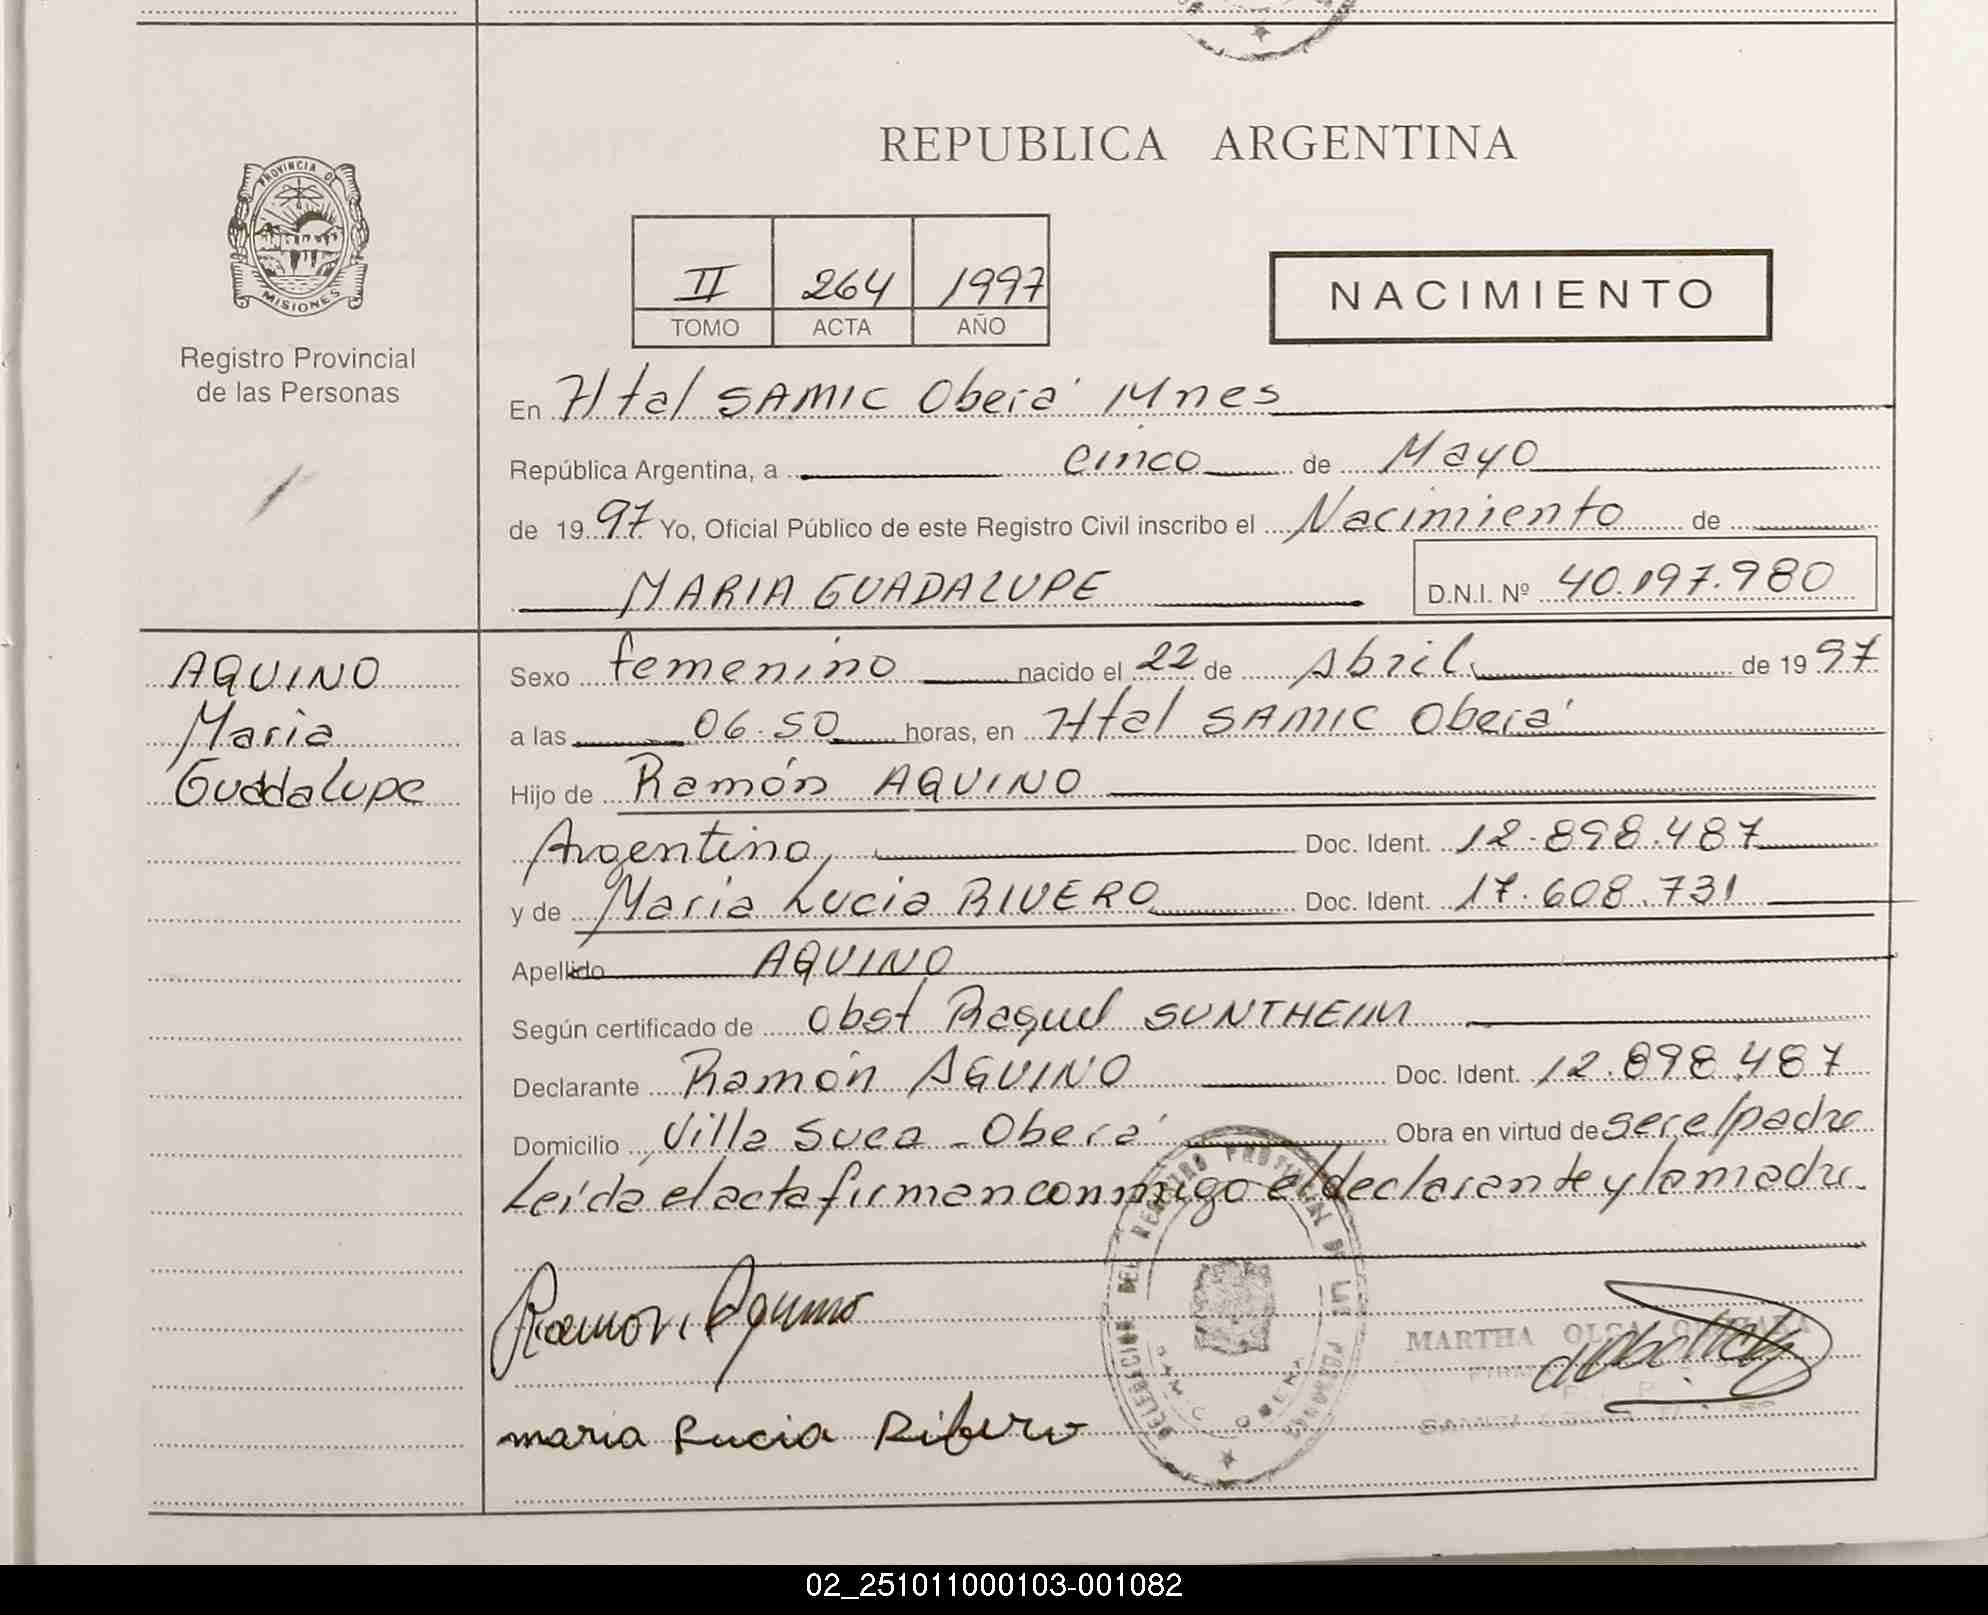 PROVINCIA DE
MISIONES
Registro Provincial
de las Personas
REPUBLICA ARGENTINA
II 264 1997
TOMO ACTA AÑO
NACIMIENTO
En Htal SAMIC Oberá Mnes
República Argentina, a cinco de Mayo
de 1997 Yo, Oficial Público de este Registro Civil inscribo el Nacimiento de
MARIA GUADALUPE D.N.I. Nº 40.197.980
AQUINO
Maria
Guadalupe
Sexo femenino nacido el 22 de Abril de 1997
a las 06.50 horas, en Htal SAMIC Oberá
Hijo de Ramón AQUINO
Argentino, Doc. Ident. 12.898.487
y de Maria Lucia RIVERO Doc. Ident. 17.608.731
Apellido AQUINO
Según certificado de Obst Raquel SUNTHEIM
Declarante Ramón AQUINO Doc. Ident. 12.898.487
Domicilio Villa Suea - Oberá Obra en virtud de ser el padre
Leída el acta firman conmigo el declarante y la madre.
DELEGACION DEL REGISTRO PROVINCIAL DE LAS PERSONAS
SAMIC OBERA
Ramon Aquino
MARTHA OLGA
maria Lucia Ribero
02_251011000103-001082